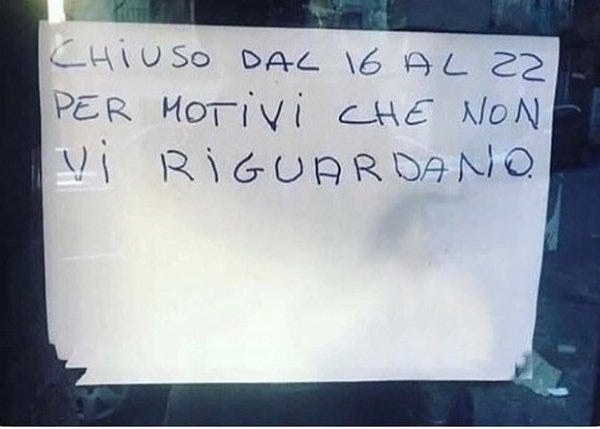 CHIUSO DAL 16 AL 22
PER MOTIVI CHE NON
VI RIGUARDANO.